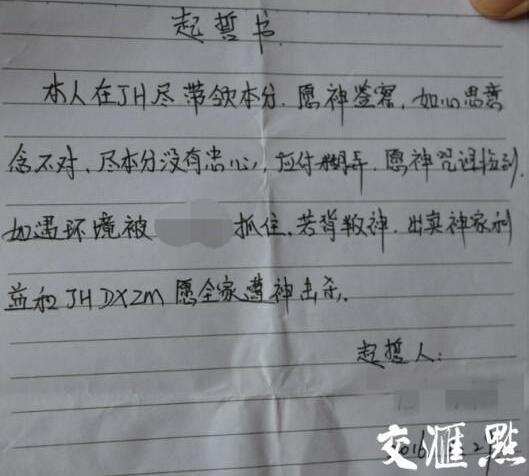 起誓书
本人在JH尽带领本分.愿神鉴察,如心思意
念不对,尽本分没有忠心,应付糊弄.愿神咒诅临到.
如遇环境被 抓住,若背叛神.出卖神家利
益和JHDXZM愿全家遭神击杀.
起誓人:
2016 2
交汇点